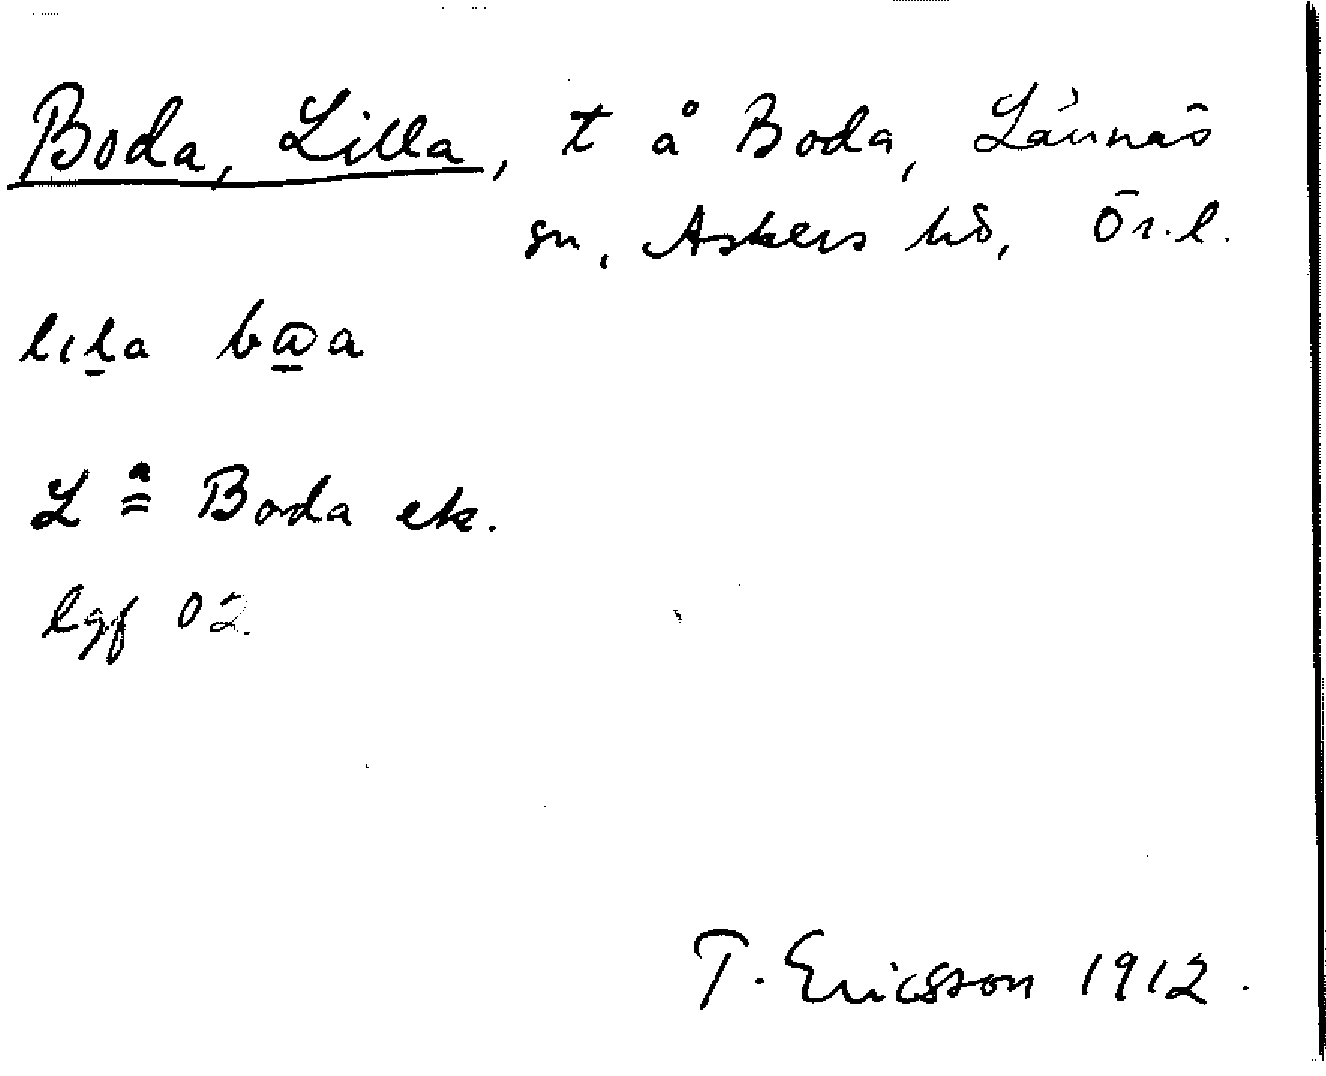 Boda, Lilla, t å Boda, Lännäs
sn, Askers hd, Ör.l.
lıla
L Boda ek.
lgf 02.
T. Ericsson 1912.